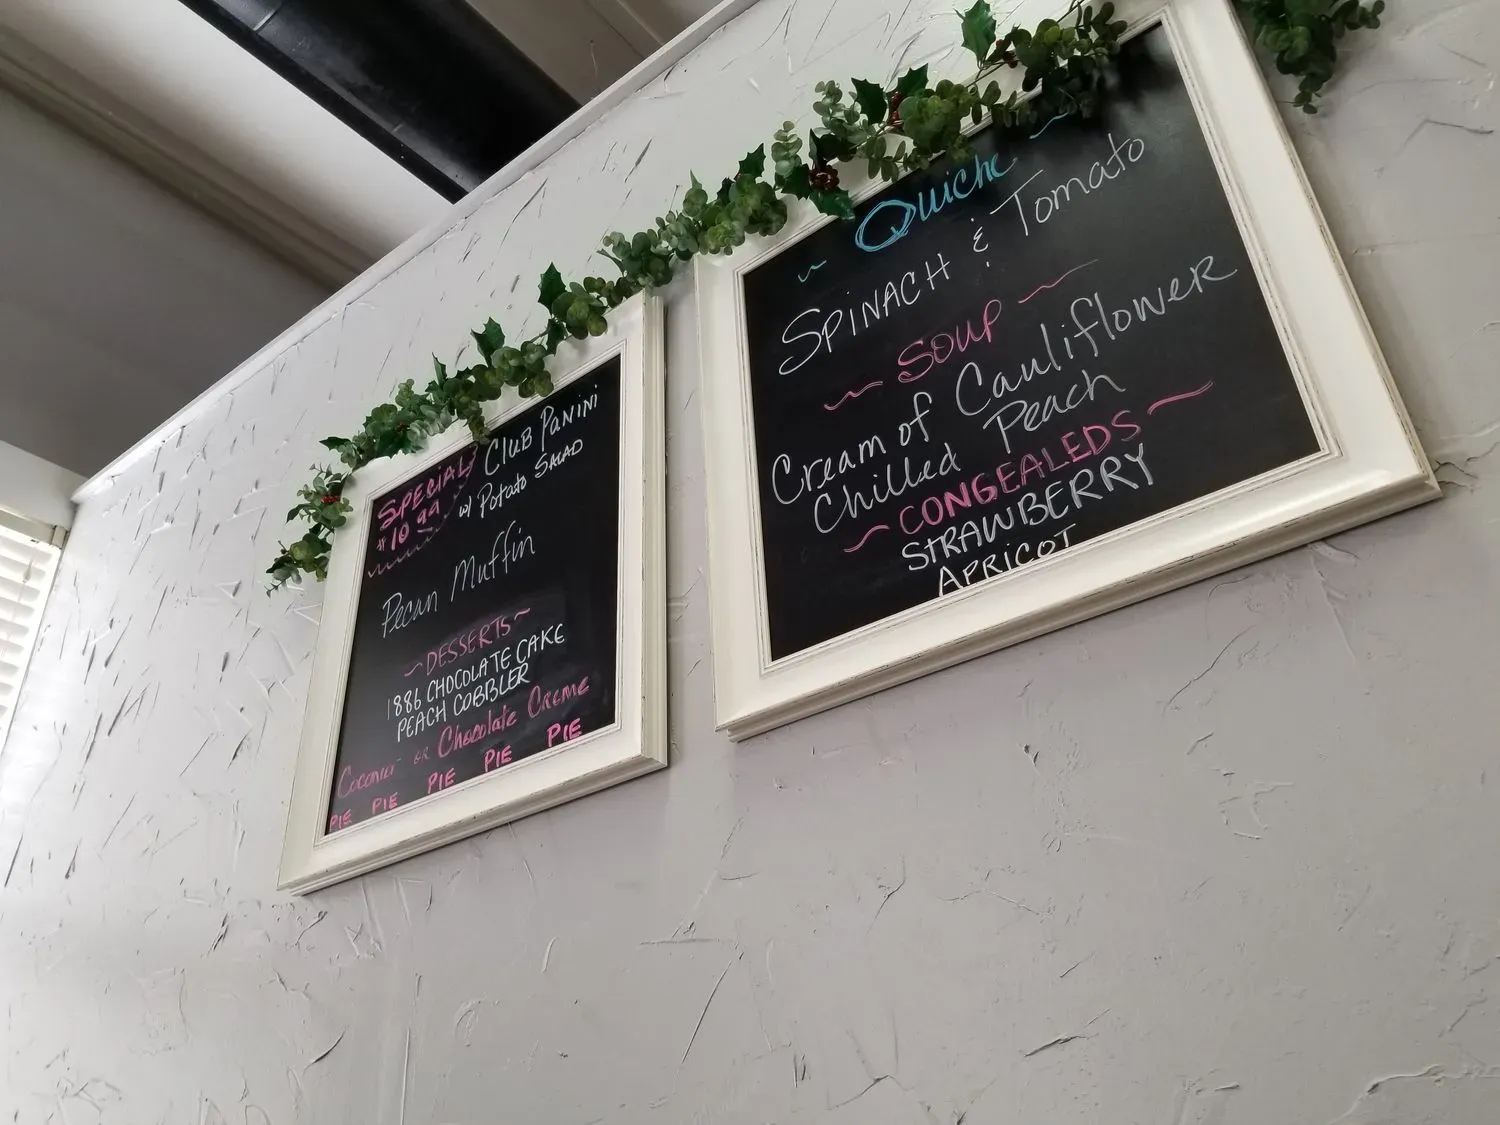 SPECIAL
$10.99
CLUB PANINI
w/ Potato SALAD
Pecan Muffin
~DESSERTS~
1886 CHOCOLATE CAKE
PEACH COBBLER
Coconut or Chocolate Creme
PIE PIE PIE PIE PIE
~ Quiche ~
SPINACH & Tomato
~ SOUP ~
Cream of Cauliflower
Chilled Peach
~ CONGEALEDS ~
STRAWBERRY
APRICOT